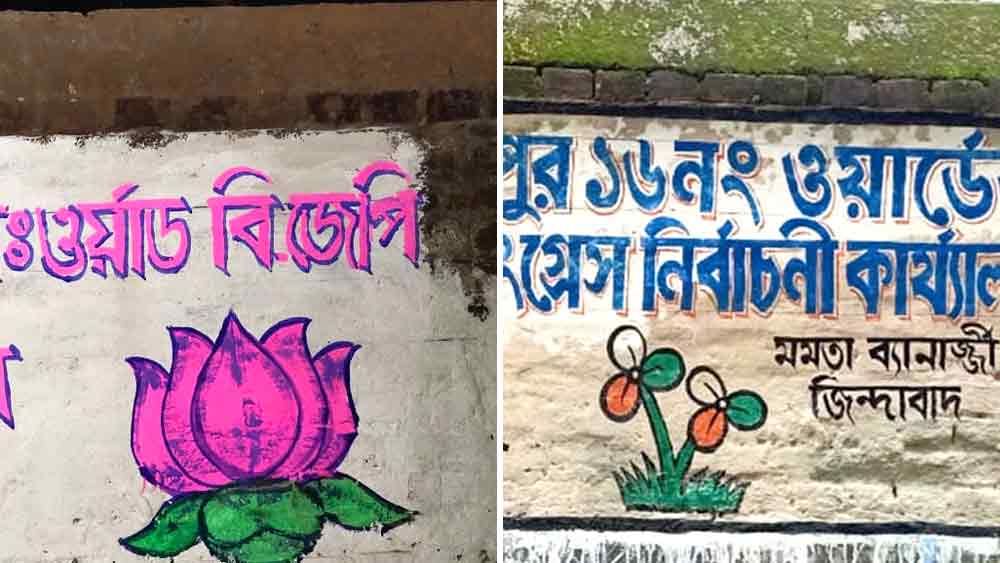 ঃওর্য়াড বি.জেপি
পুর ১৬ নং ওয়ার্ডে
গ্রেস নির্বাচনী কার্য্যাল
মমতা ব্যানার্জ্জী
জিন্দাবাদ